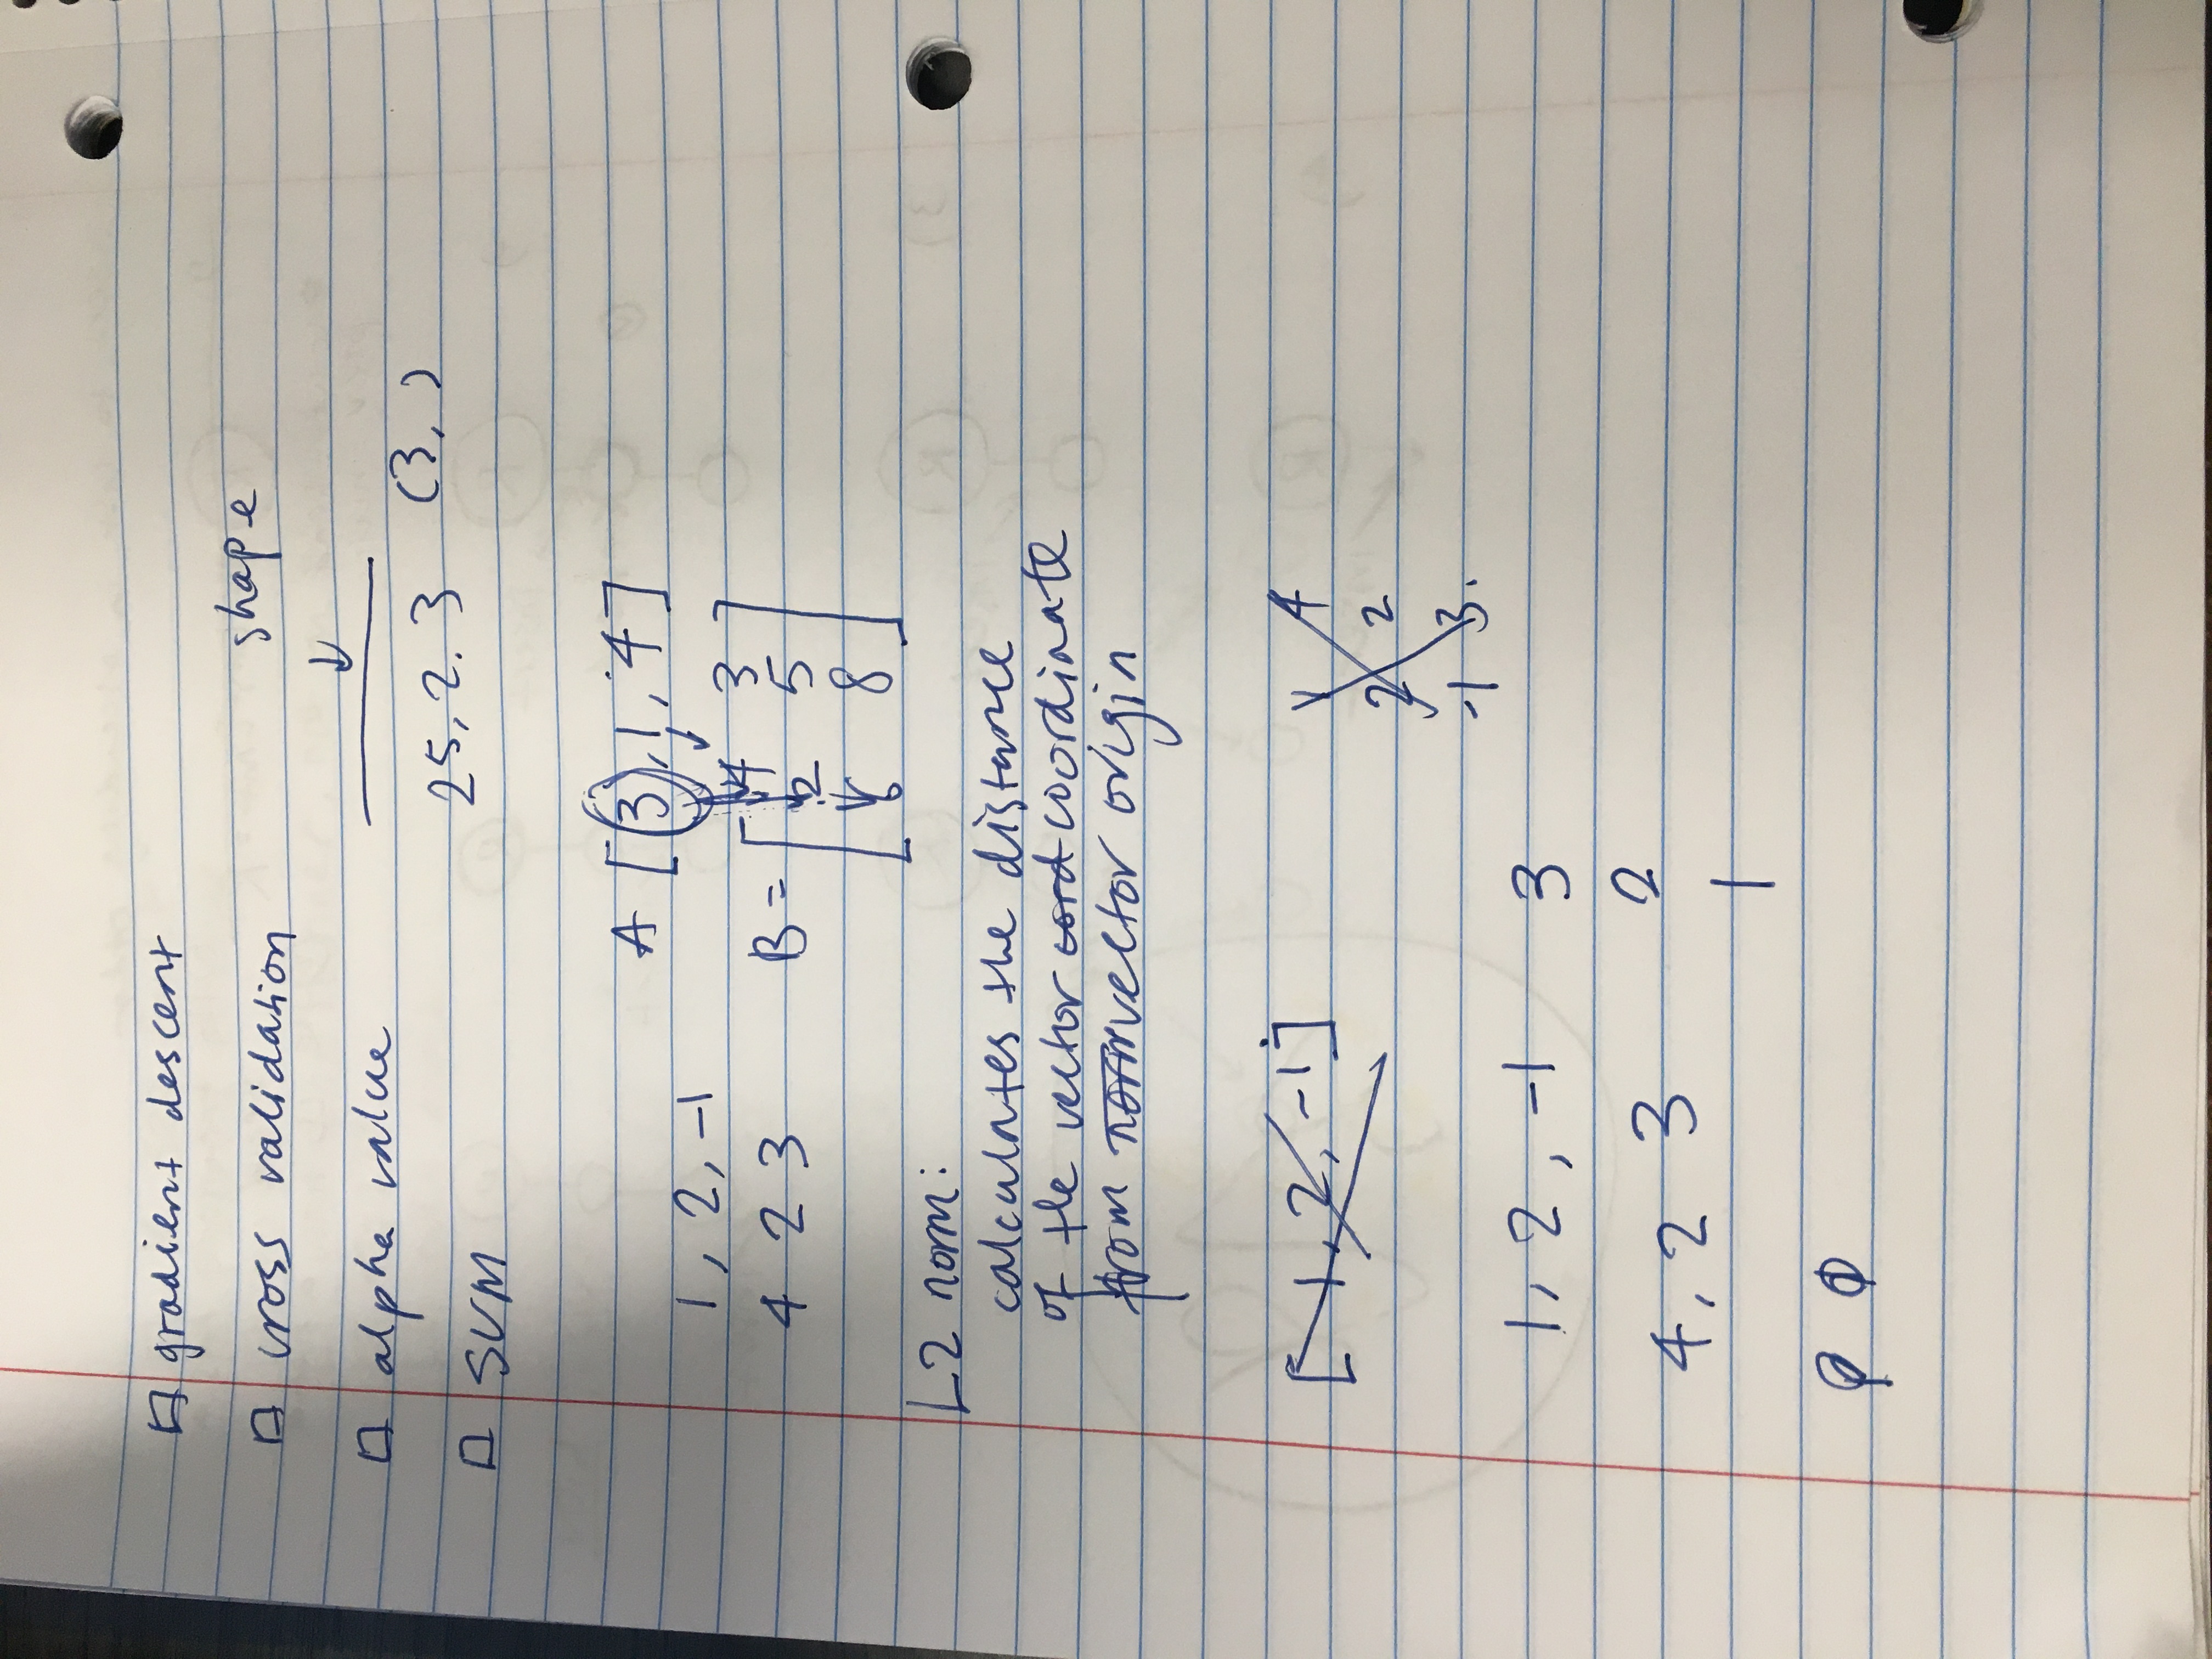 gradient descent
cross validation
shape
alpha value
25, 2, 3 (3, )
SVM
A [3, 1, 4]
1, 2, -1
4 3
4 2 3
B =
2 5
6 8
L2 norm:
calculates the distance
of the vector cord coordinate
from norm vector origin
[1, 2, -1]
1 4
2 2
-1 3.
1, 2, -1 3
2
4, 2 3
1